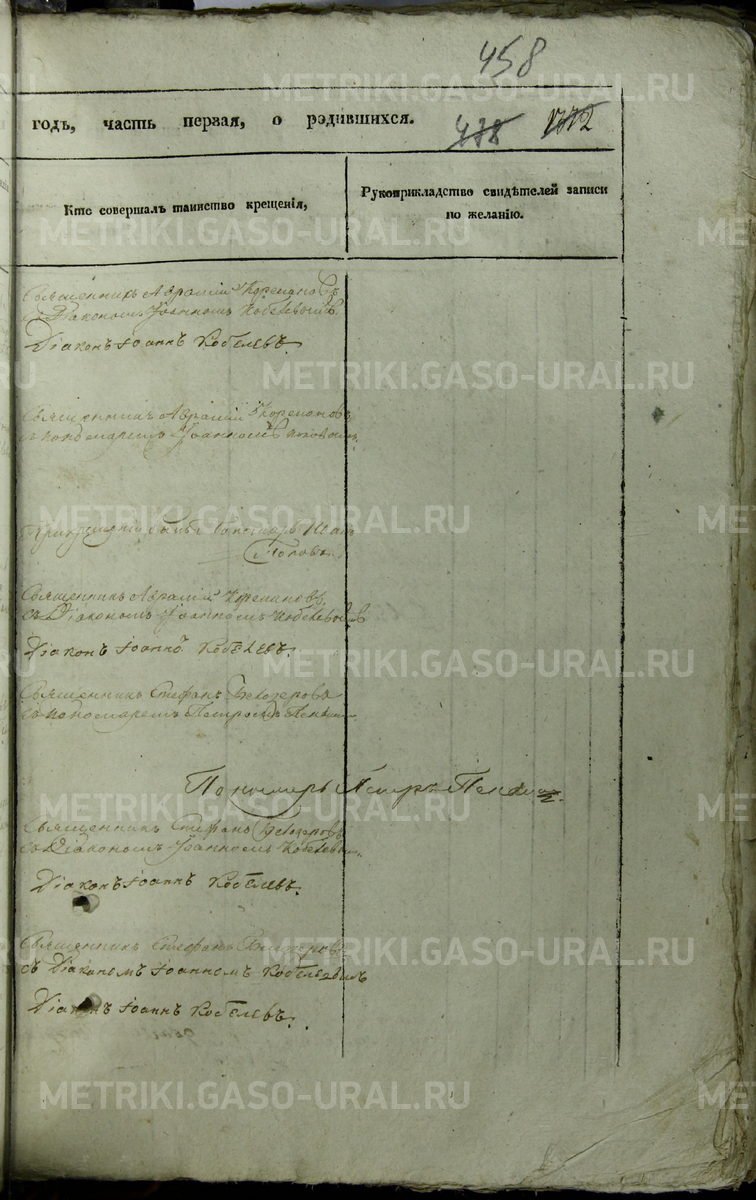 458
годъ, часть первая, о родившихся.
Кто совершалъ таинство крещенія,
Рукоприкладство свидѣтелей записи
по желанію.
Священникъ Аврамій Корепановъ
съ Діакономъ Іоанномъ Кобелевымъ
Діаконъ Іоаннъ Кобелевъ.
Священникъ Аврамій Корепановъ
съ пономаремъ Іоанномъ Поповымъ.
При крещеніи былъ Пономарь Иванъ
Поповъ
Священникъ Аврамій Корепановъ
съ Діакономъ Іоанномъ Кобелевымъ
Діаконъ Іоаннъ Кобелевъ.
Священникъ Стефанъ Белозеровъ
съ пономаремъ Петромъ
Пономарь Петръ
Священникъ Стефанъ Белозеровъ
съ Діакономъ Іоанномъ Кобелевым
Діаконъ Іоаннъ Кобелевъ.
Священникъ Стефанъ Белозеровъ
съ Діакономъ Іоанномъ Кобелевымъ
Діаконъ Іоаннъ Кобелевъ.
METRIKI.GASO-URAL.RU